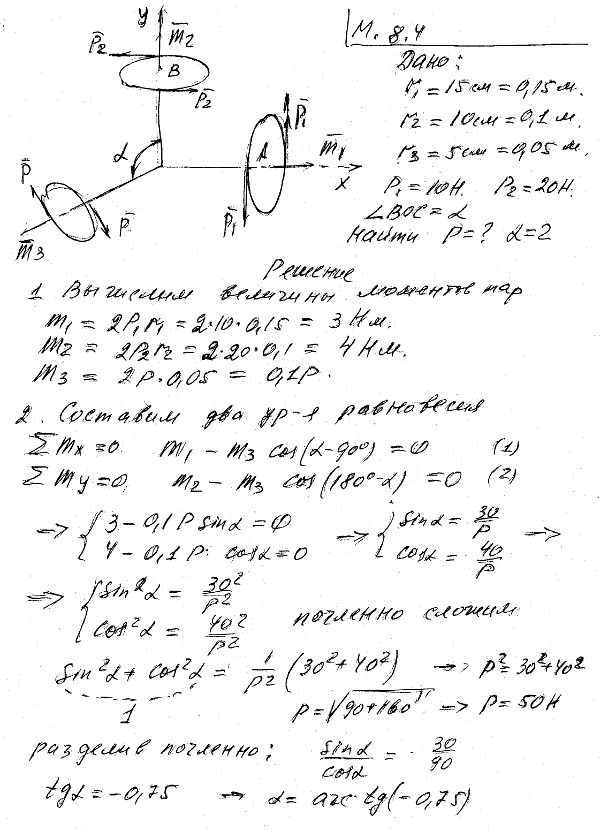 y
m̄2
P̄2
B
P̄2
α
P̄1
A
m̄1
x
P̄1
P̄
P̄
m̄3
М. 8.4
Дано:
r1 = 15 см = 0,15 м.
r2 = 10 см = 0,1 м.
r3 = 5 см = 0,05 м.
P1 = 10Н. P2 = 20Н.
∠BOC = α
Найти P = ? α = ?
Решение
1. Вычислим величины моментов пар
m1 = 2P1r1 = 2·10·0,15 = 3 Нм.
m2 = 2P2r2 = 2·20·0,1 = 4 Нм.
m3 = 2P·0,05 = 0,1P.
2. Составим два ур-я равновесия
Σmx = 0. m1 − m3 cos(α−90°) = 0 (1)
Σmy = 0. m2 − m3 cos(180°−α) = 0 (2)
=> { 3 − 0,1P sinα = 0 => { sinα = 30/P =>
4 − 0,1P· cosα = 0 cosα = 40/P
=> { sin²α = 30²/P²
cos²α = 40²/P² почленно сложим
sin²α + cos²α = 1/P² (30² + 40²) → P² = 30² + 40²
1 P = √90+160 => P = 50Н
разделив почленно: sinα/cosα = - 30/90
tgα = −0,75 → α = arc tg(−0,75)